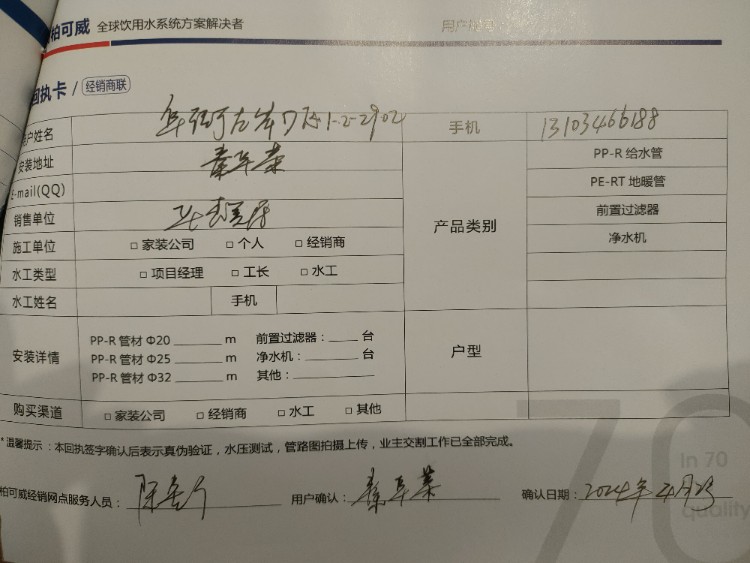 柏可威 全球饮用水系统方案解决者
回执卡 / 经销商联
用户姓名 1-2-2902 手机 13103466188
安装地址 秦
E-mail(QQ)
销售单位
施工单位 □ 家装公司 □ 个人 □ 经销商
水工类型 □ 项目经理 □ 工长 □ 水工
水工姓名 手机
产品类别
PP-R 给水管
PE-RT 地暖管
前置过滤器
净水机
安装详情
PP-R 管材 Φ20 ______ m 前置过滤器：____ 台
PP-R 管材 Φ25 ______ m 净水机：____ 台
PP-R 管材 Φ32 ______ m 其他：______
户型
购买渠道 □ 家装公司 □ 经销商 □ 水工 □ 其他
* 温馨提示：本回执签字确认后表示真伪验证，水压测试，管路图拍摄上传，业主交割工作已全部完成。
柏可威经销网点服务人员： 用户确认：秦 确认日期：2024年4月23
70
In 70
quality